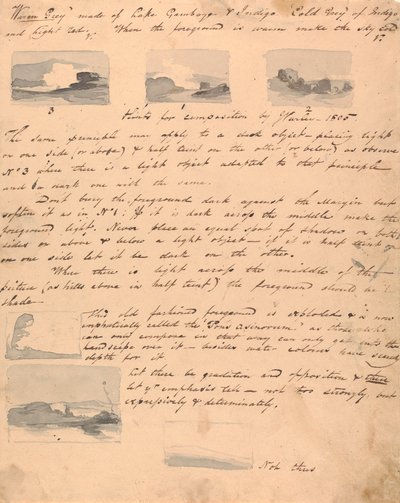 "Warm Grey" made of Lake Gamboge & Indigo Cold Grey of Indigo
and Light Red. When the foreground is warm make the sky cold
3 2 1
Hints for composition by J Varley - 1805
The same principle may apply to a dark object - placing light
on one side (or above) & half tint on the other (or below) as observe
No 3 where there is a light object adapted to that principle
and a dark one with the same.
Don't bring the foreground dark against the Margin but
soften it as in No 1. If it is dark across the middle make the
foreground light. Never place an equal spot of shadow on both
sides or above & below a light object - if it is half tint on
one side let it be dark on the other.
When there is light across the middle of the
picture (as hills above in half tint) the foreground should be in
shade
This old fashioned foreground is exploded & is now
emphatically called the "Pons asinorum" as those who
can only compose in that way can only get into the
landscape over it - besides water colours have scarcely
depth for it
Let there be gradation and opposition & there
let yr emphasis tell - not too strongly, but
expressively & determinately.
Not thus